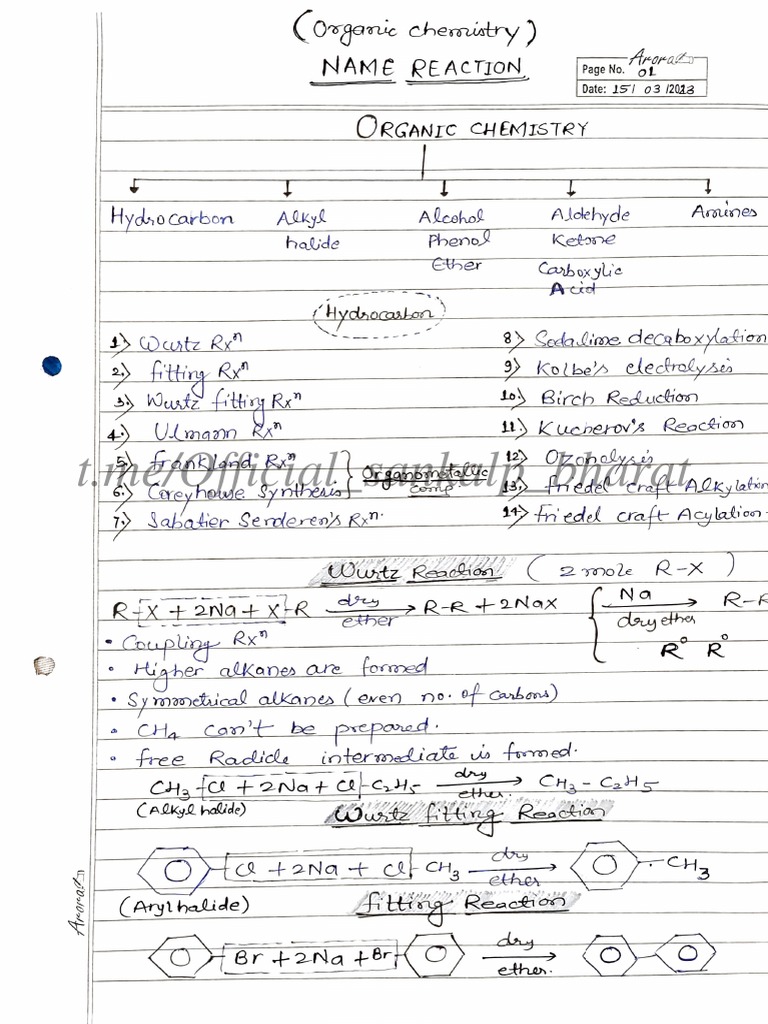 (Organic chemistry)
NAME REACTION
Arora
Page No. 01
Date: 15/ 03 /2023
ORGANIC CHEMISTRY
Hydrocarbon Alkyl halide Alcohol Phenol Ether Aldehyde Ketone Carboxylic Acid Amines
Hydrocarbon
1) Wurtz Rxⁿ
2) fitting Rxⁿ
3) Wurtz fitting Rxⁿ
4) Ulmann Rxⁿ
5) Frankland Rxⁿ
6) Coreyhouse Synthesis
Organometallic comp
7) Sabatier Senderen's Rxⁿ.
8) Sodalime decaboxylation
9) Kolbe's electrolysis
10) Birch Reduction
11) Kucherov's Reaction
12) Ozonolysis
13) friedel craft Alkylation
14) friedel craft Acylation
t.me/Official_sankalp_bharat
Wurtz Reaction (2 mole R-X)
R-X + 2Na + X-R dry ether → R-R + 2NaX { Na dry ether → R-R
R° R°
• Coupling Rxⁿ
• Higher alkanes are formed
• Symmetrical alkanes (even no. of carbons)
• CH₄ can't be prepared.
• free Radicle intermediate is formed.
CH₃-Cl + 2Na + Cl-C₂H₅ dry ether. → CH₃-C₂H₅
(Alkyl halide)
Wurtz fitting Reaction
Cl + 2Na + Cl CH₃ dry ether → CH₃
(Arylhalide)
fitting Reaction
Br + 2Na + Br dry ether. →
Arora